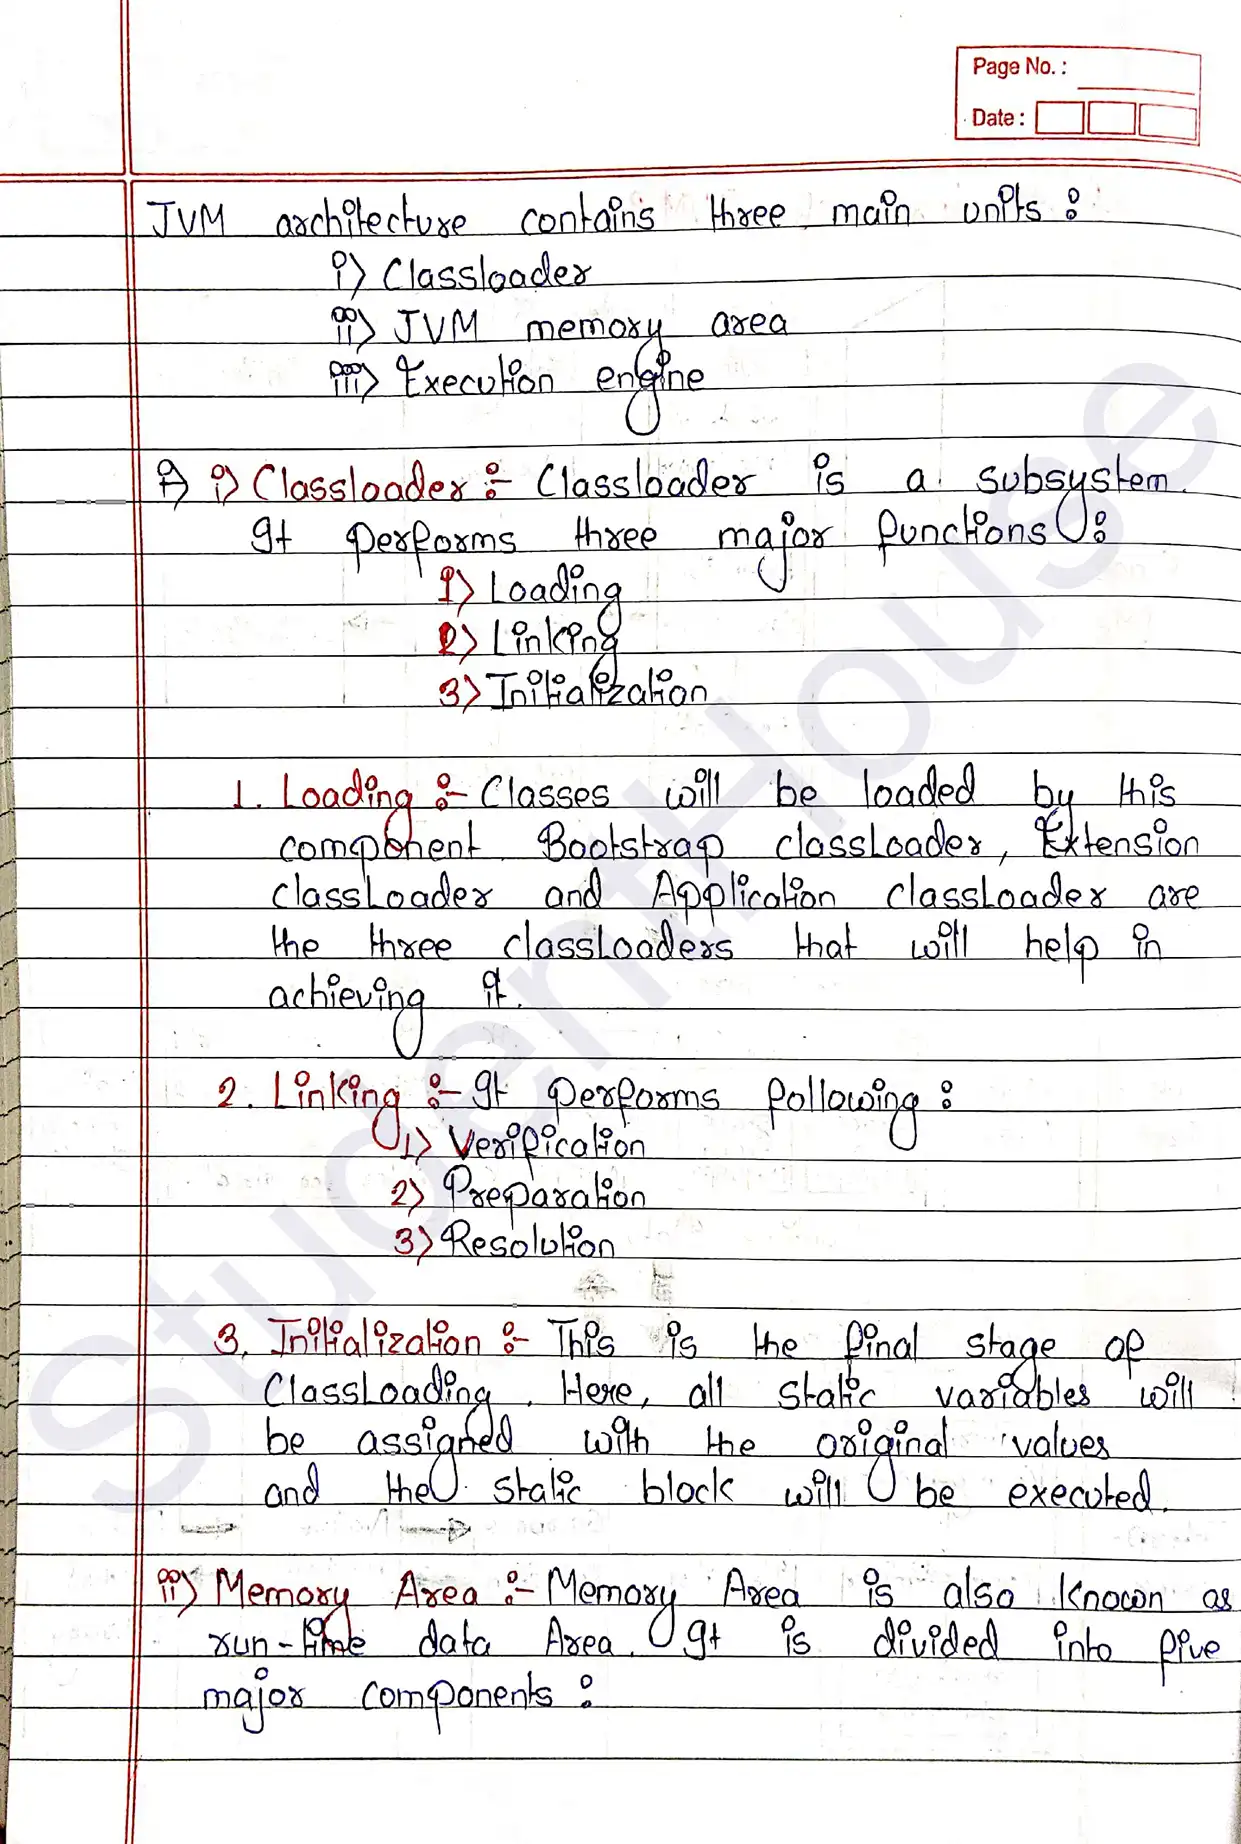 Page No. :
Date :
JVM architecture contains three main units :
i) Classloader
ii) JVM memory area
iii) Execution engine
A) i) Classloader :- Classloader is a subsystem.
It performs three major functions :
1) Loading
2) Linking
3) Initialization
1. Loading :- Classes will be loaded by this
component Bootstrap classLoader, Extension
classLoader and Application classLoader are
the three classLoaders that will help in
achieving it.
2. Linking :- It performs following :
1) Verification
2) Preparation
3) Resolution
3. Initialization :- This is the final stage of
ClassLoading. Here, all static variables will
be assigned with the original values
and the static block will be executed.
ii) Memory Area :- Memory Area is also known as
run-time data Area. It is divided into five
major components :
StudentHouse